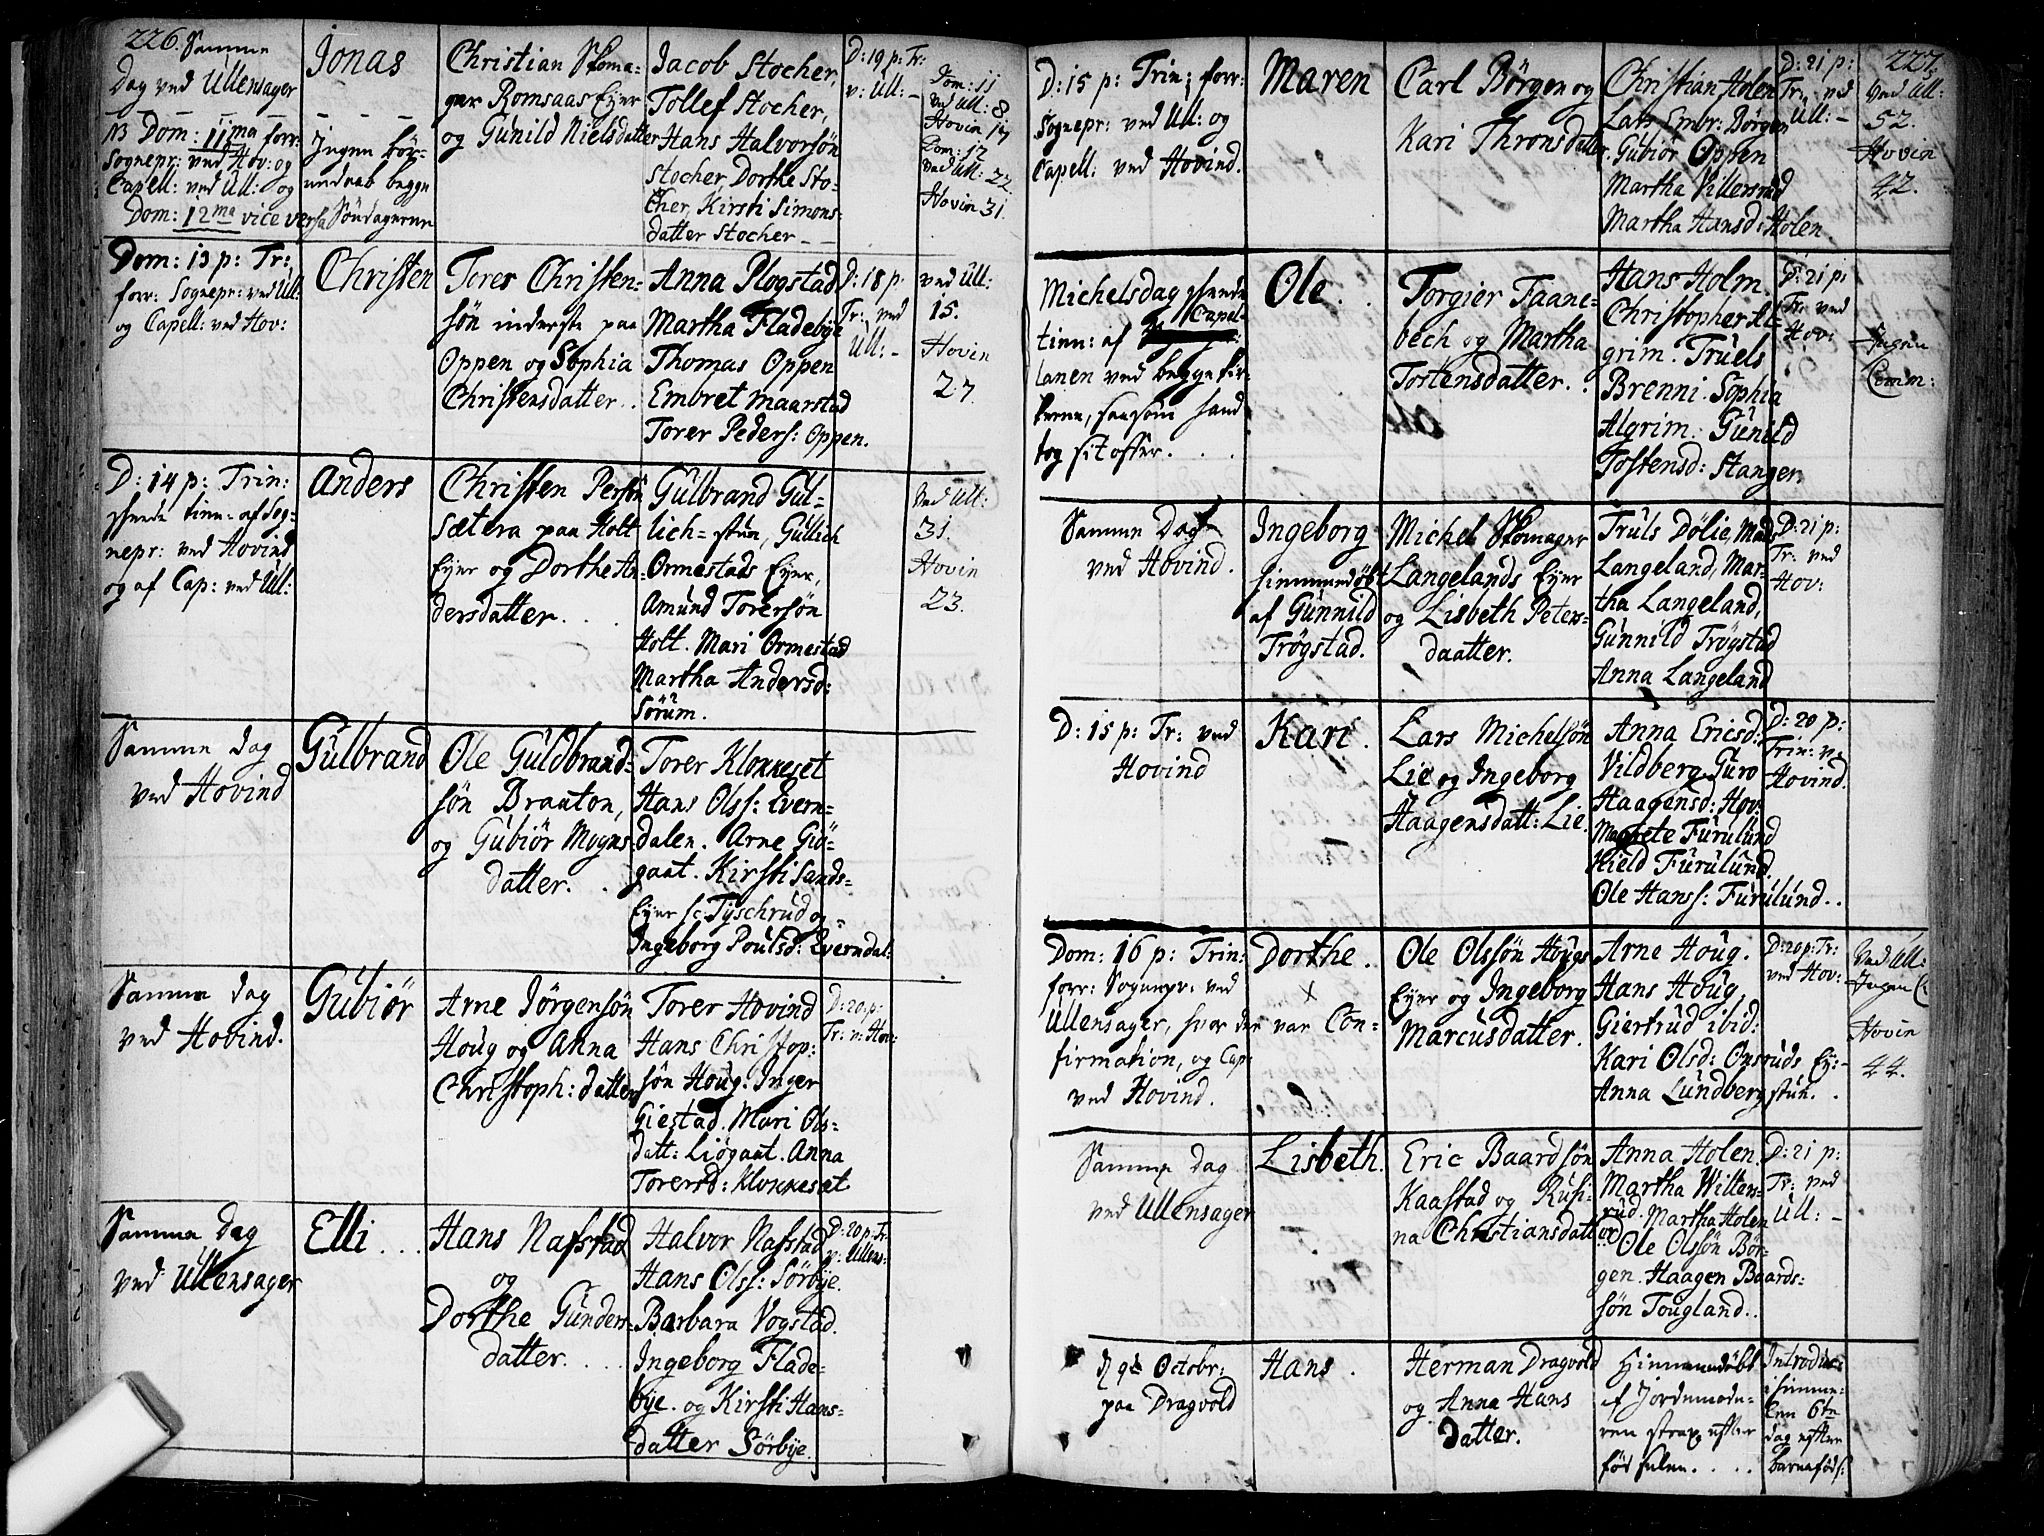 226. Samme
Dag ved Ullensager
NB Dom: 11ma forr:
Sognepr: ved Hov: og
Capell: ved Ull: og
Dom: 12ma vice versa
Jonas
Ingen bør-
begge
Søndagerne
Christian Skoma-
ger Romsaas Eyer
og Gunild Nielsdatter
Jacob Stocher,
Tollef Stocher,
Hans Halvorsøn
Stocher, Dorthe Sto-
cher, Kirsti Simons-
datter Stocher
D: 19 p: Tr:
v: Ull:
Dom: 11
ved Ull: 8
Hovin 17
Dom: 12
ved Ull: 22.
Hovin 31.
Dom: 13 p: Tr:
forr: Sognepr: ved Ull:
og Capell: ved Hov:
Christen
Torer Christen-
søn inderste paa
Oppen og Sophia
Christensdatter.
Anna Plogstad
Martha Fladebye
Thomas Oppen
Embret Maarstad
Torer Peders: Oppen.
D: 18 p:
Tr: ved
Ull: -
ved Ull:
15.
Hovin
27.
D: 14 p: Trin:
tien: af Sog-
nepr: ved Hovind
og af Cap: ved Ull:
Anders
Christen Persøn
Sætera paa Holt
Eyer og Dorthe An-
dersdatter.
Gulbrand Gul-
lich-stun, Gullich
Ormestads Eyer,
Amund Torersøn
Holt. Mari Ormestad
Martha Andersd:
Sørum.
ved Ull:
31.
Hovin
23.
Samme Dag
ved Hovind
Gulbrand
Ole Guldbrand-
søn Braaton,
og Gubiør Mogns-
datter.
Torer Klokkeset
Hans Olss: Evern-
dalen. Arne Giø-
gaat. Kirsti Sands-
Eyer sc: Tyschrud og
Ingeborg Poulsd: Everndal:
Samme Dag
ved Hovind.
Gubiør
Arne Jørgensøn
Houg og Anna
Christoph: datter
Torer Hovind
Hans Christop:
søn Houg. Inger
Giestad. Mari Ols-
datt: Liøgaat. Anna
Torersd: Klokkesæt
D: 20. p:
Tr: v: Hov:
Samme Dag
ved Ullensager
Elli
Hans Nafstad
og
Dorthe Gunders-
datter.
Halvor Nafstad
Hans Olss: Sørbye.
Barbara Vogstad.
Ingeborg Flade-
bye. og Kirsti Hans-
datter Sørbye.
D: 20 p: Tr:
v: Ullens:
227.
D: 15 p: Trin: forr:
Sognepr: ved Ull: og
Capell: ved Hovind.
Maren
Carl Børgen og
Kari Thronsdatter
Christian Holen
Lars Embr: Børgen
Gubiør Oppen
Martha Villersrud
Martha Hansd: Holen
D: 21 p:
Tr: ved
Ull: -
ved Ull:
52.
Hovin
42.
Michelsdag
tien: af Capel-
lanen ved begge Kir-
kerne, saasom hand
tog sit offer.
Ole
Torgier Faane-
bech og Martha
Tostensdatter.
Hans Holm
Christopher Al-
grim. Truels
Brenni. Sophia
Algrim. Gunild
Tostensd: Stanger.
D: 21 p:
Tr: ved
Hov:
Ingen
Comm:
Samme Dag
ved Hovind.
Ingeborg
hiemmedøbt
af Gunnild
Trøgstad.
Michel Skomager
Langelands Eyer
og Lisbeth Peters-
daatter.
Truls Dølie, Mads
Langeland, Mar-
tha Langeland,
Gunnild Trøgstad
Anna Langeland
D: 21 p:
Tr: ved
Hov:
D: 15 p: Tr: ved
Hovind
Kari.
Lars Michelsøn
Lie og Ingeborg
Haagensdatt: Lie.
Anna Ericsd:
Vildberg. Guro
Haagensd: Hov.
Magrete Furulund
Kield Furulund.
Ole Hanss: Furulund.
D: 20 p:
Trin: v:
Hovind.
Dom: 16 p: Trin:
forr: Sognepr: ved
Ullensager, hvor der var Con-
firmation, og Cap:
ved Hovind.
Dorthe.
Ole Olssøn Hougs
Eyer og Ingeborg
Marcusdatter.
Arne Houg.
Hans Houg,
Giertrud ibid:
Kari Olsd: Onsruds Ey:
Anna Lundberg stun.
D: 20 p: Tr:
ved Hov:
ved Ull:
Ingen C:
Hovin
44.
Samme Dag
ved Ullensager
Lisbeth.
Eric Baardsøn
Kaastad og Rusi-
na Christiansdatter
Anna Holen.
Martha Willers-
rud. Martha Holen
Ole Olssøn Bør-
gen. Haagen Baards-
søn Tougland.
D: 21 p:
Tr: ved
Ull: -
d 9de Octobr:
paa Dragvold
Hans.
Herman Dragvold
og Anna Hans
datter.
Hiemmedøbt
af Jordemode-
ren strax efter
fødselen.
Introduc:
hiemme
den 6te
dag efter
barneføds: